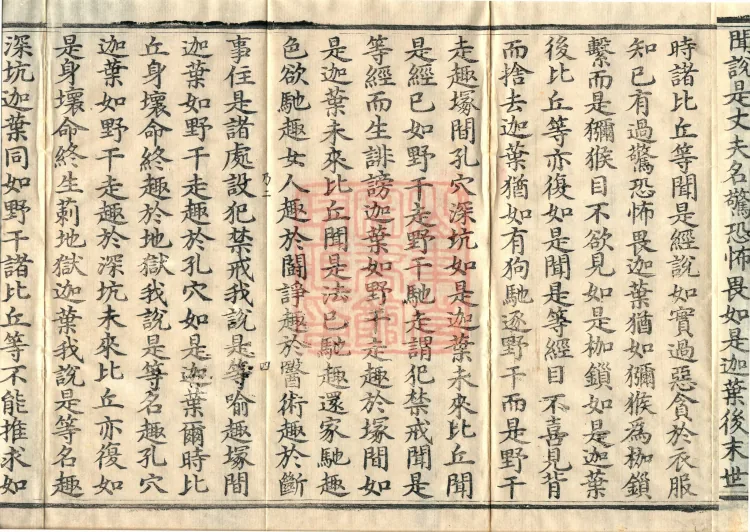 聞說是丈夫名驚恐怖畏如是迦葉後末世
時諸比丘等聞是經說如實過惡貪於衣服
知已有過驚恐怖畏迦葉猶如獼猴為枷鎖
繫而是獼猴目不欲見如是枷鎖如是迦葉
後比丘等亦復如是聞是等經目不喜見背
而捨去迦葉猶如有狗馳逐野干而是野干
走趣塚間孔穴深坑如是迦葉未來比丘聞
是經已如野干走野干馳走謂犯禁戒聞是
等經而生誹謗迦葉如野干走趣於塚間如
是迦葉未來比丘聞是法已馳趣還家馳趣
色欲馳趣女人趣於鬪諍趣於醫術趣於斷
事住是諸處設犯禁戒我說是等喻趣塚間
乃二
四
迦葉如野干走趣於孔穴如是迦葉爾時比
丘身壞命終趣於地獄我說是等名趣孔穴
迦葉如野干走趣於深坑未來比丘亦復如
是身壞命終生𠛬地獄迦葉我說是等名趣
深坑迦葉同如野干諸比丘等不能推求如